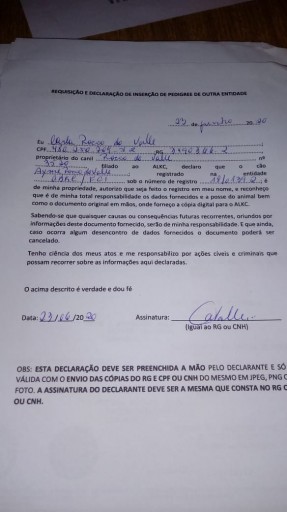 REQUISIÇÃO E DECLARAÇÃO DE INSERÇÃO DE PEDIGREE DE OUTRA ENTIDADE
23 de junho de 20 20
Eu
CPF RG
proprietário do canil nº
filiado ao ALKC, declaro que o cão
registrado na entidade
sob o número de registro , é
de minha propriedade, autorizo que seja feito o registro em meu nome, e reconheço
que é de minha total responsabilidade os dados fornecidos e a posse do animal bem
como o documento original em mãos, onde forneço a cópia digital para o ALKC.
Sabendo-se que quaisquer causas ou consequências futuras recorrentes, oriundos por
informações deste documento fornecido, serão de minha responsabilidade. E que ainda,
caso ocorra algum desencontro de dados fornecidos o documento poderá ser
cancelado.
Tenho ciência dos meus atos e me responsabilizo por ações cíveis e criminais que
possam recorrer sobre as informações aqui declaradas.
O acima descrito é verdade e dou fé
Data: 23/06/2020 Assinatura:
(Igual ao RG ou CNH)
OBS: ESTA DECLARAÇÃO DEVE SER PREENCHIDA A MÃO PELO DECLARANTE E SÓ
VÁLIDA COM O ENVIO DAS CÓPIAS DO RG E CPF OU CNH DO MESMO EM JPEG, PNG
FOTO. A ASSINATURA DO DECLARANTE DEVE SER A MESMA QUE CONSTA NO RG
OU CNH.